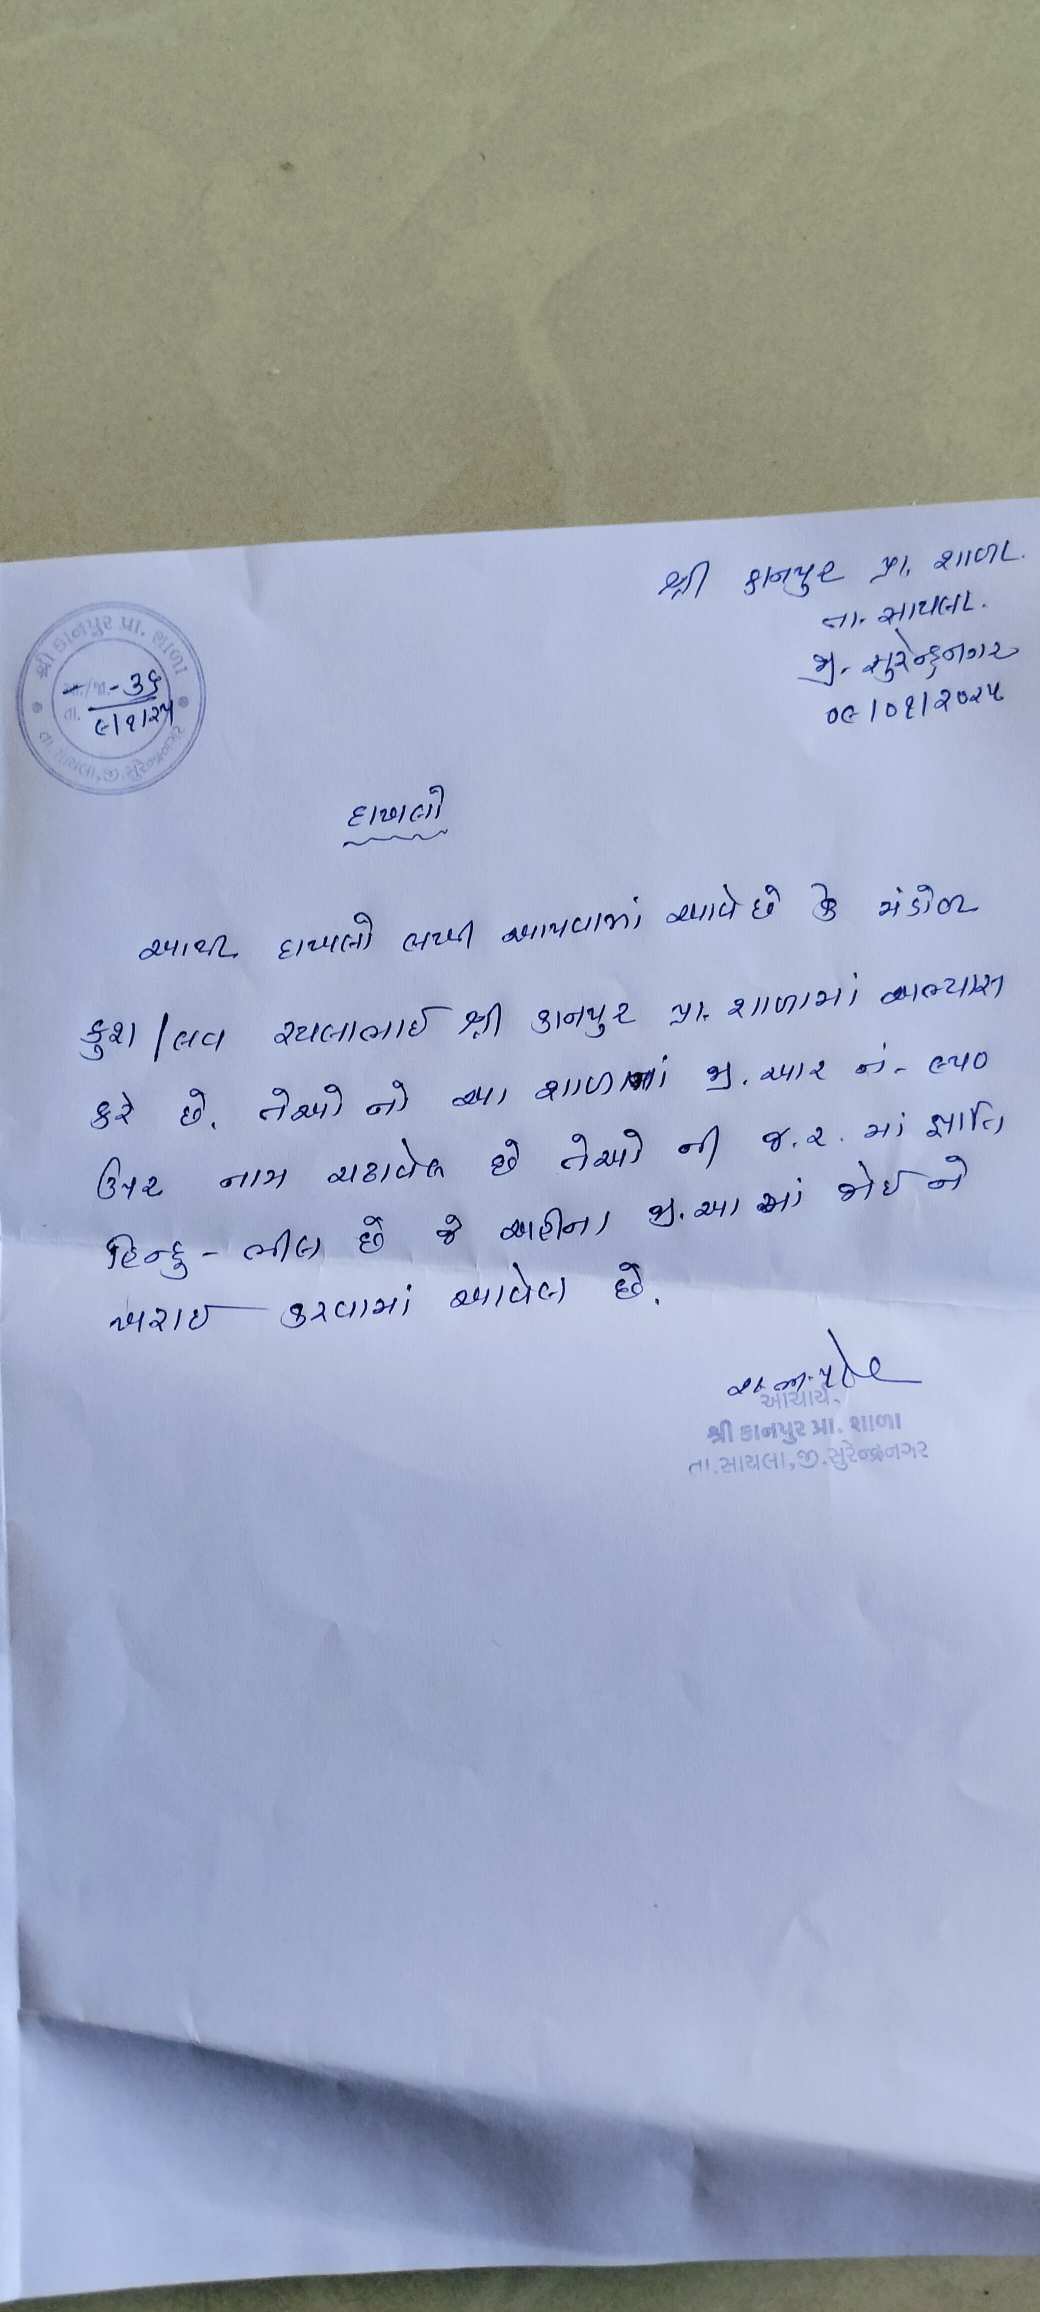 શ્રી કાનપુર પ્રા. શાળા.
તા. સાયલા.
જી. સુરેન્દ્રનગર
૦૯/૦૧/૨૦૨૫
શ્રી કાનપુર પ્રા. શાળા
જા./જા.-૩૬
તા. ૯/૧/૨૫
તા.સાયલા,જી.સુરેન્દ્રનગર
દાખલો
આથી દાખલો લખી આપવામાં આવે છે કે મંડોળ
કુશ/લવ રયલાભાઈ શ્રી કાનપુર પ્રા. શાળામાં અભ્યાસ
કરે છે. તેઓ નો આ શાળામાં જી.આર નં- ૯૫૦
ઉપર નામ ચઢાવેલ છે તેઓ ની જ.ર. માં જ્ઞાતિ
હિન્દુ - ભીલ છે જે અહીના જી.આ માં જોઈ ને
ખરાઈ કરવામાં આવેલ છે.
આચાર્ય,
શ્રી કાનપુર પ્રા. શાળા
તા.સાયલા,જી.સુરેન્દ્રનગર